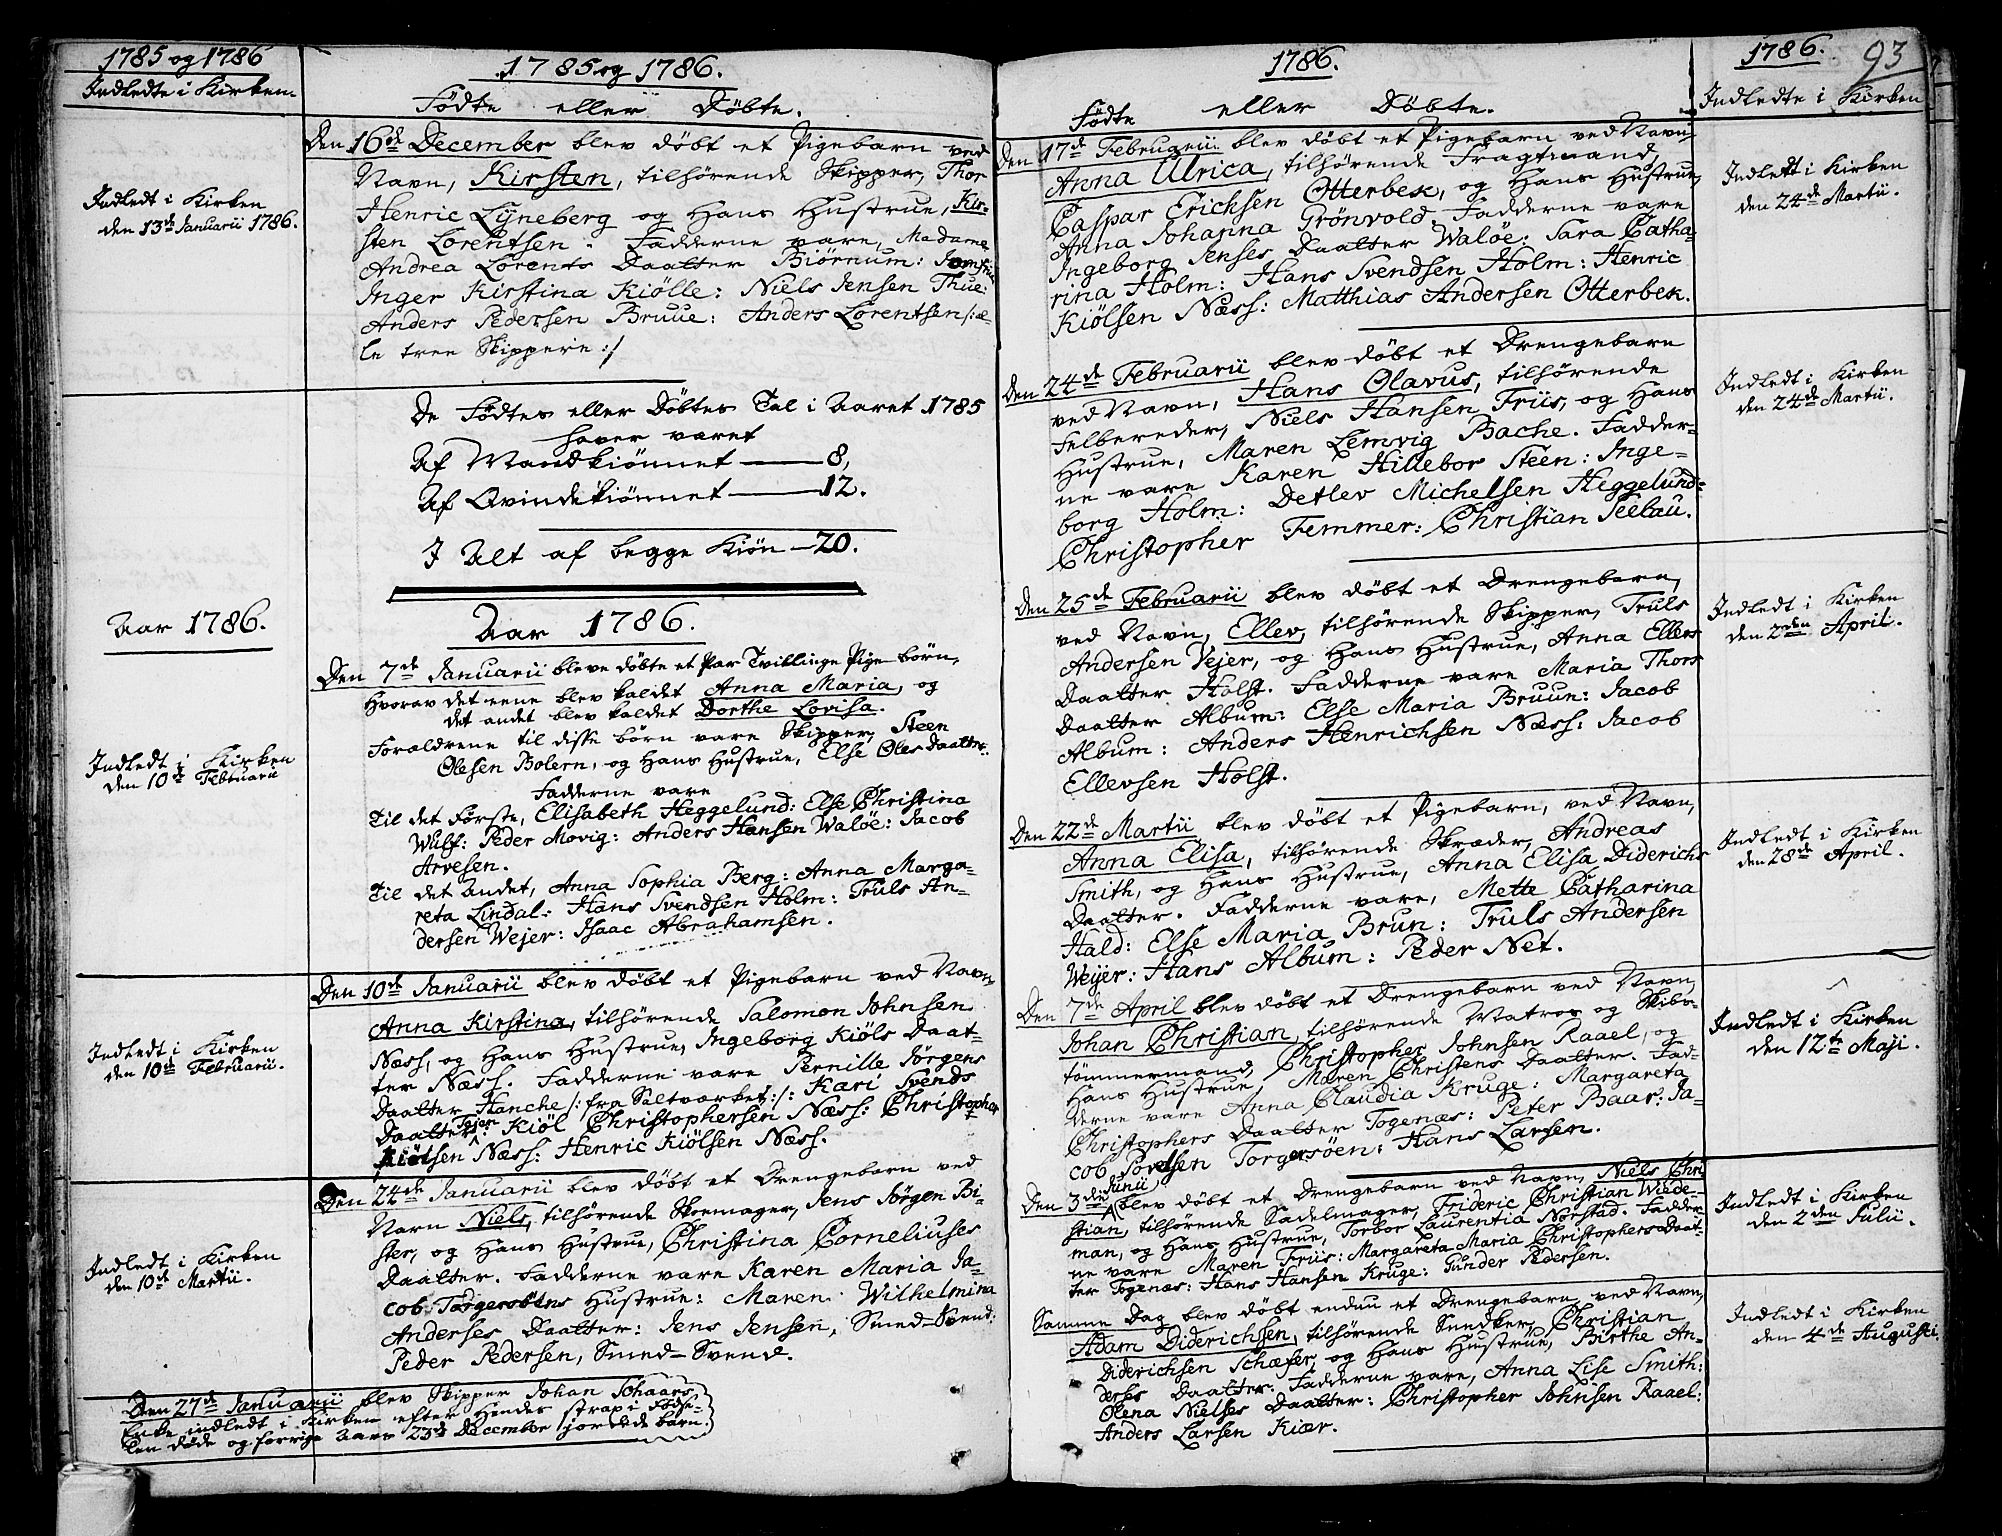 1785 og 1786
Indledte i Kirken
1785 og 1786.
Fødte eller Døbte.
Indledt i Kirken
den 13de Januarii 1786.
Den 16de December blev døbt et Pigebarn ved
Navn, Kirsten, tilhørende Skipper, Thor
Henric Lÿneberg og Hans Hustrue, Kir-
sten Lorentsen. Fadderne vare, Madame
Andrea Lorents Daatter Biørnum: Jomfrue
Inger Kirstina Kiølle: Niels Jensen Thue:
Anders Pedersen Bruue: Anders Lorentsen /:al-
le tree Skippere:/
De Fødtes eller Døbtes Tal i Aaret 1785
haver været
Af Mandkiønnet — 8,
Af Qvindekiønnet — 12.
I Alt af begge Kiøn — 20.
Aar 1786.
Aar 1786.
Den 7de Januarii bleve døbte et Par Tvillinge Pige børn,
Hvorav det eene blev kaldet Anna Maria, og
det andet blev kaldet Dorthe Lovisa.
Forældrene til disse børn vare Skipper, Steen
Olesen Bolern, og Hans Hustrue, Else Oles Daatter.
Indledt i Kirken
den 10de Februarii
Fadderne vare
Til det Første, Elisabeth Heggelund: Else Christina
Wulf: Peder Movig: Anders Hansen Waløe: Jacob
Arvesen.
Til det Andet, Anna Sophia Berg: Anna Marga-
reta Lindal: Hans Svendsen Holm: Truls An-
dersen Wejer: Isaac Abrahamsen.
Den 10de Januarii blev døbt et Pigebarn ved Navn,
Anna Kirstina, tilhørende Salomon Johnsen
Næss, og Hans Hustrue, Ingeborg Kiøls Daat-
ter Næss. Fadderne vare Pernille Jørgens
Daatter Hanche /: fra Saltværket:/: Kari Svends
Daatter Tejen: Kiøl Christophersen Næss: Christopher
Kiølsen Næss: Henric Kiølsen Næss.
Indledt i Kirken
den 10de Februarii.
Den 24de Januarii blev døbt et Drengebarn ved
Navn Niels, tilhørende Skoemager, Jens Jørgen Bi-
ster, og Hans Hustrue, Christina Corneliuses
Daatter. Fadderne vare Karen Maria Ja-
cob Torgersøens Hustrue: Maren Wilhelmina
Anderses Daatter: Jens Jensen, Smed-Svend:
Peder Pedersen, Smed-Svend.
Indledt i Kirken
den 10de Martii.
Den 27de Januarii blev Skipper Johan Schaars
Enke indledt i Kirken efter Hendes strax i Fødse-
len døde og forrige Aars 23de December jordede barn.
1786.
Fødte eller Døbte.
1786. 93
Indledte i Kirken
Den 17de Februarii blev døbt et Pigebarn ved Navn,
Anna Ulrica, tilhørende Fragtmand,
Caspar Ericksen Otterbek, og Hans Hustrue,
Anna Johanna Grønvold. Fadderne vare
Ingeborg Jenses Daatter Waløe: Sara Catha-
rina Holm: Hans Svendsen Holm: Henric
Kiølsen Næss: Matthias Andersen Otterbek.
Indledt i Kirken
den 24de Martii.
Den 24de Februarii blev døbt et Drengebarn
ved Navn, Hans Olavus, tilhørende
Felbereder, Niels Hansen Friis, og Hans
Hustrue, Maren Lemvig Bache. Fadder-
ne vare Karen Hillebor Steen: Inge-
borg Holm: Detlev Michelsen Heggelund:
Christopher Femmer: Christian Seelau.
Indledt i Kirken
den 24de Martii.
Den 25de Februarii blev døbt et Drengebarn,
ved Navn, Ellev, tilhørende Skipper, Truls
Andersen Vejer, og Hans Hustrue, Anna Ellevs
Daatter Holst. Fadderne vare Maria Thors
Daatter Album: Else Maria Bruun: Jacob
Album: Anders Henrichsen Næss: Jacob
Ellevsen Holst.
Indledt i Kirken
den 2den April.
Den 22de Martii blev døbt et Pigebarn, ved Navn,
Anna Elisa, tilhørende Skræder, Andreas
Smith, og Hans Hustrue, Anna Elisa Diderichs
Daatter. Fadderne vare, Mette Catharina
Hald: Else Maria Brun: Truls Andersen
Weÿer: Hans Album: Peder Net.
Indledt i Kirken
den 28de April.
Den 7de April blev døbt et Drengebarn ved Navn,
Johan Christian, tilhørende Matros og Skibs-
tømmermand, Christopher Johnsen Raael, og
Hans Hustrue, Maren Christens Daatter. Fad-
derne vare Anna Claudia Kruge: Margareta
Christophers Daatter Togenæs: Peter Baar: Ja-
cob Torgersøen: Hans Larsen.
Indledt i Kirken
den 12te Maji.
Den 3die Junii blev døbt et Drengebarn ved Navn, Niels Chri-
stian, tilhørende Sadelmager, Frideric Christian Wiede-
man, og Hans Hustrue, Torbor Laurentia Norstad. Fadder-
ne vare Maren Friis: Margareta Maria Christophers Daat-
ter Togenæs: Hans Hansen Kruge: Gunder Pedersen.
Indledt i Kirken
den 2den Julii.
Samme Dag blev døbt endnu et Drengebarn, ved Navn,
Adam Diderichsen, tilhørende Snedker, Christian
Diderichsen Schæfer, og Hans Hustrue, Birthe An-
derses Daatter. Fadderne vare, Anna Lise Smith:
Olena Nielses Daatter: Christopher Johnsen Raael:
Anders Larsen Kiær.
Indledt i Kirken
den 4de Augusti.